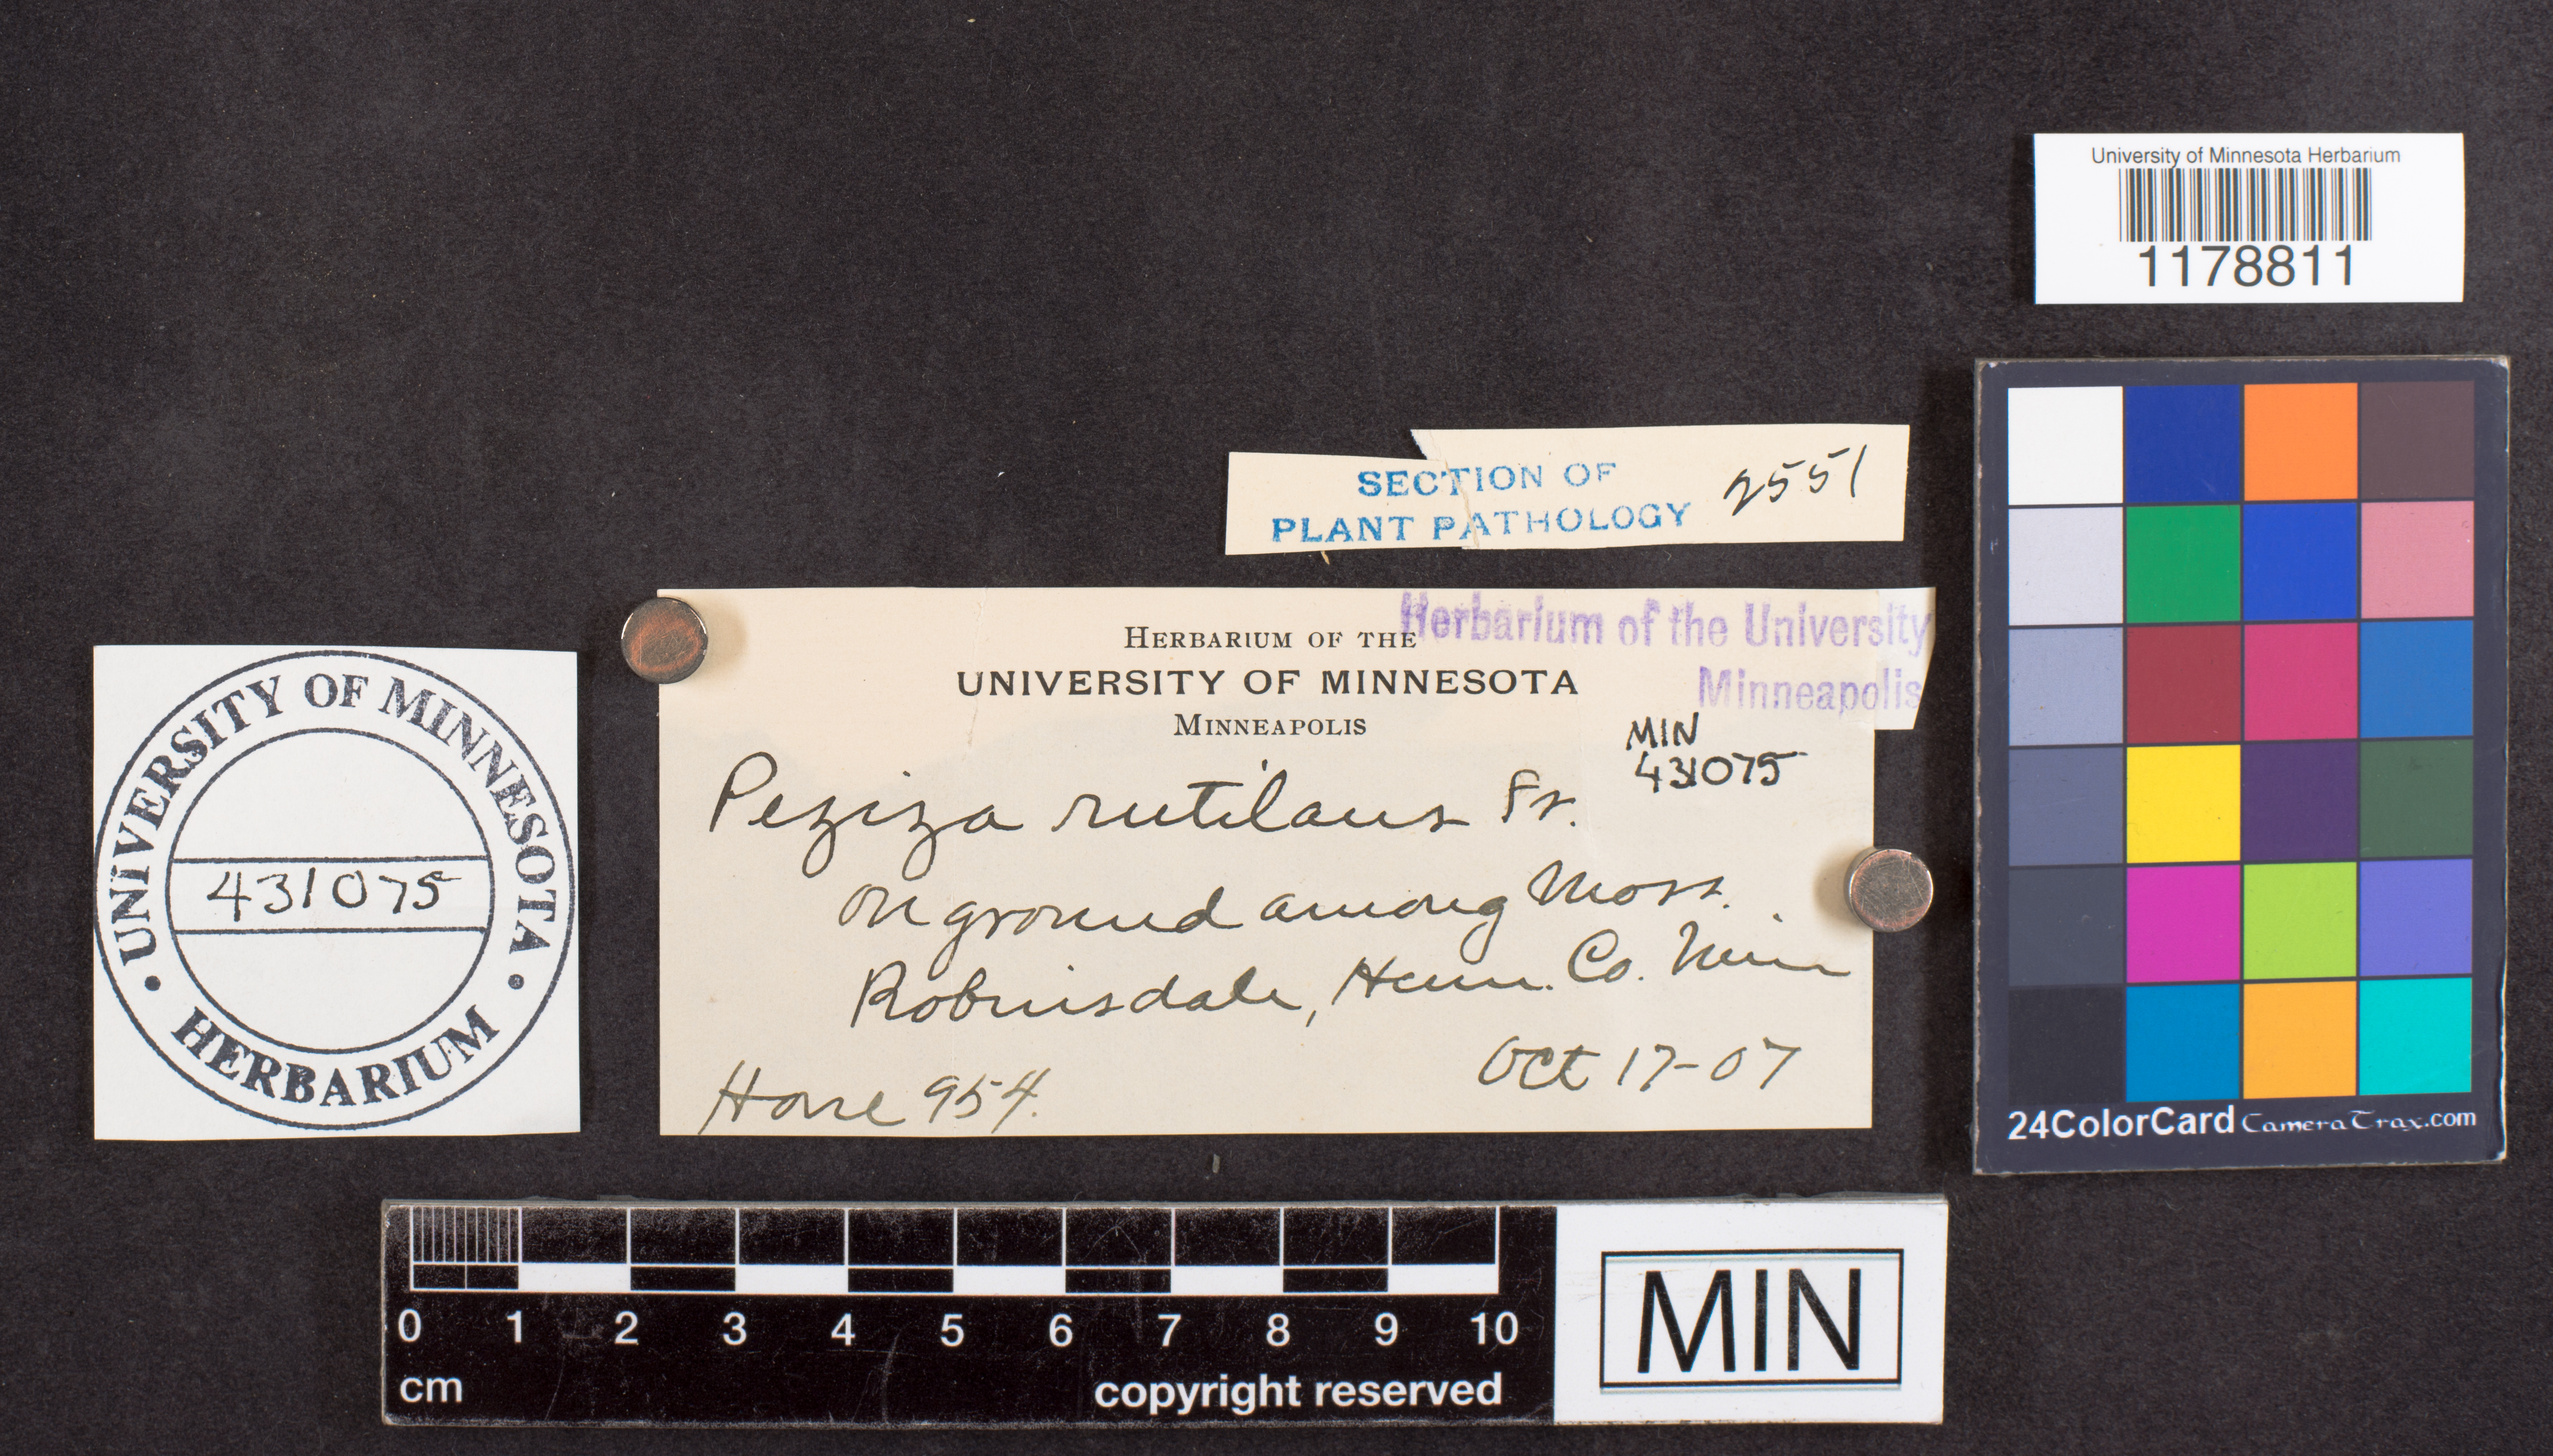 University of Minnesota Herbarium
1178811
SECTION OF
PLANT PATHOLOGY
2551
Herbarium of the University
Minneapolis
HERBARIUM OF THE
UNIVERSITY OF MINNESOTA
MINNEAPOLIS
MIN
431075
Peziza rutilans Fr.
on ground among Moss.
Robinsdale, Henn. Co. Minn
Oct 17-07
Hone 954.
UNIVERSITY OF MINNESOTA
431075
HERBARIUM
24ColorCard CameraTrax.com
0 1 2 3 4 5 6 7 8 9 10
cm
copyright reserved
MIN